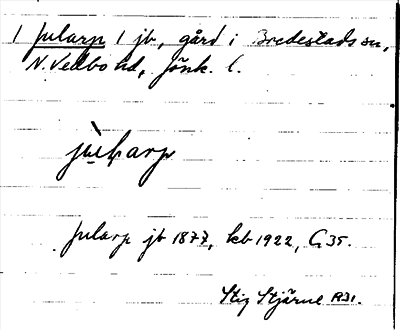 1 Jularp 1 jb, gård i Bredestads sn,
N. Vedbo hd, Jönk. l.
Jularp jb 1877, kb 1922, G 35.
Stig Stjärne 1931.